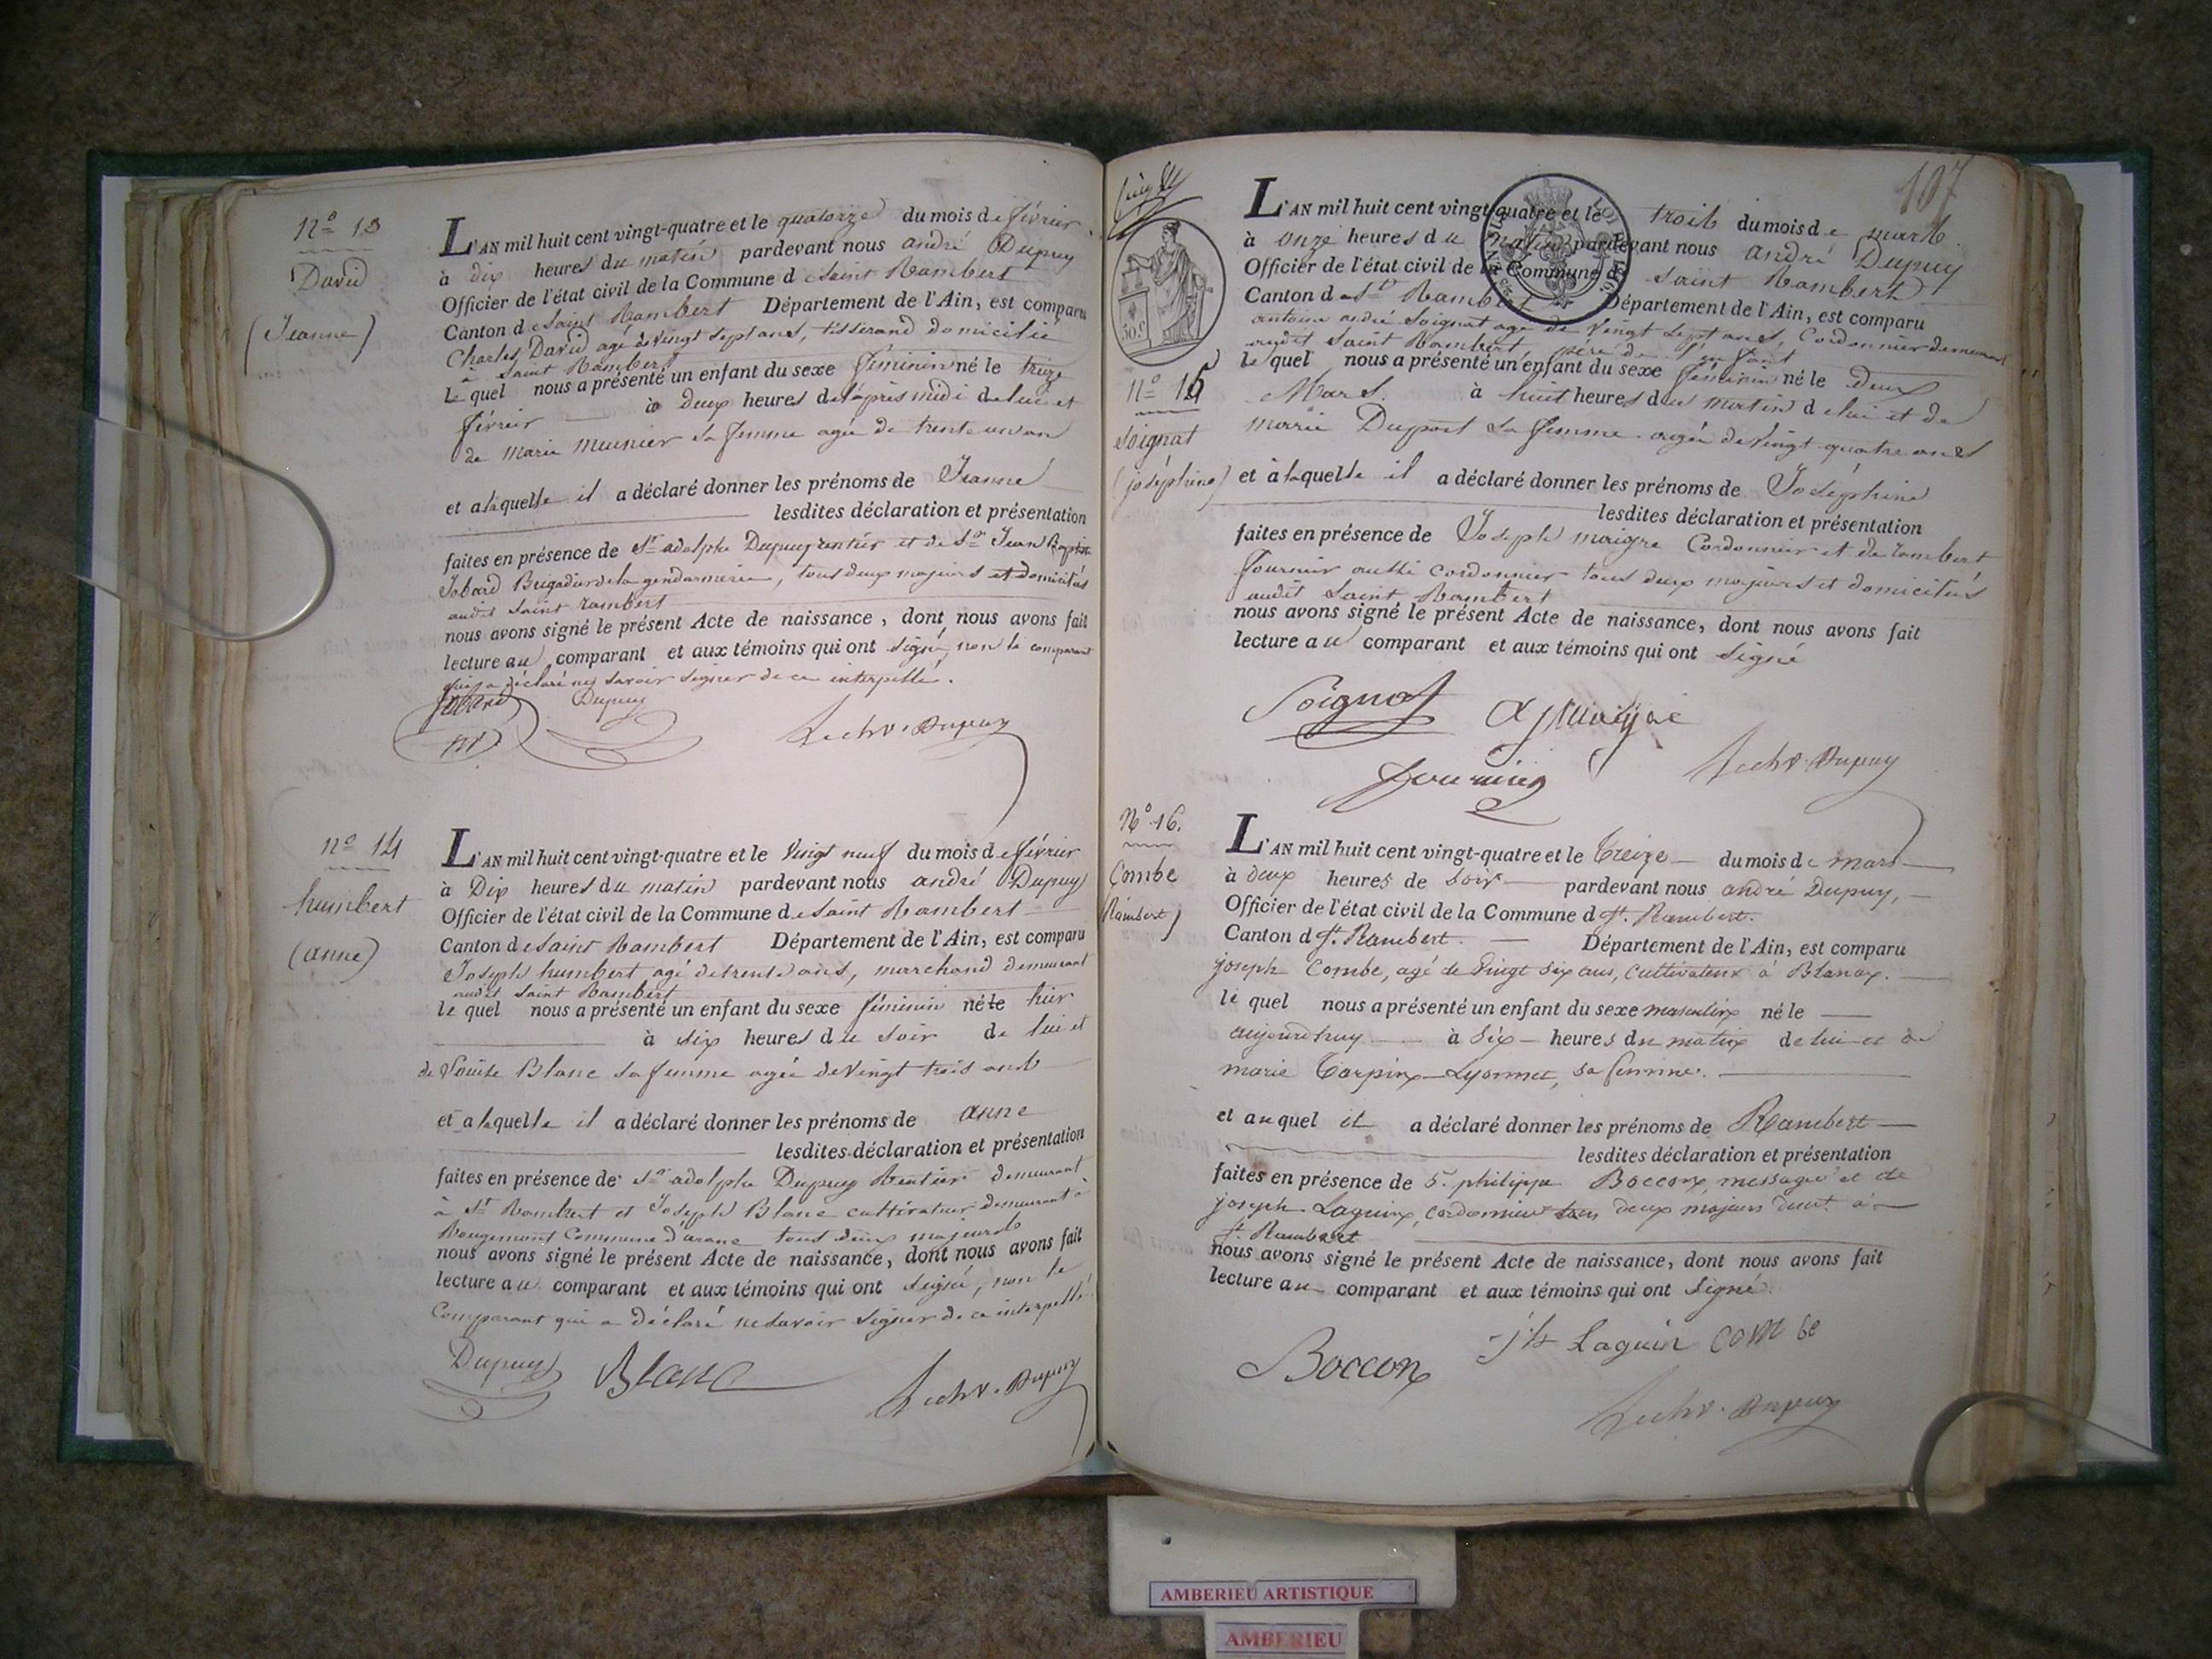 nº 13
David
(Jeanne)
L'AN mil huit cent vingt-quatre et le quatorze du mois de février
à dix heures du matin pardevant nous andré Dupuy
Officier de l'état civil de la Commune de Saint Rambert
Canton de Saint Rambert Département de l'Ain, est comparu
Charles David agé de vingt sept ans, tisserand domicilié
à Saint Rambert
le quel nous a présenté un enfant du sexe féminin né le treize
février à deux heures de l'après midi de lui et
de marie meunier sa femme agée de trente un an
et a laquelle il a déclaré donner les prénoms de Jeanne
lesdites déclaration et présentation
faites en présence de Sr adolphe Dupuy rentier et de Sr Jean Baptiste
Jobard Brigadier de la gendarmerie, tous deux majeurs et domiciliés
audit Saint rambert
nous avons signé le présent Acte de naissance, dont nous avons fait
lecture au comparant et aux témoins qui ont signé, non le comparant
qui a déclaré ne savoir signer de ce interpellé.
Dupuy
Dupuy
nº 14
humbert
(anne)
L'AN mil huit cent vingt-quatre et le vingt neuf du mois de février
à Dix heures du matin pardevant nous andré Dupuy
Officier de l'état civil de la Commune de Saint Rambert
Canton de Saint Rambert Département de l'Ain, est comparu
Joseph humbert agé de trente ans, marchand demeurant
audit Saint Rambert
le quel nous a présenté un enfant du sexe féminin né le hier
à six heures du soir de lui et
de Louise Blanc sa femme agée de vingt trois ans
et a laquelle il a déclaré donner les prénoms de anne
lesdites déclaration et présentation
faites en présence de Sr adolphe Dupuy Rentier demeurant
à St Rambert et Joseph Blanc cultivateur demeurant à
Rougemont Commune d'arane tous deux majeurs
nous avons signé le présent Acte de naissance, dont nous avons fait
lecture au comparant et aux témoins qui ont signé, non le
Comparant qui a déclaré ne savoir signer de ce interpellé
Dupuy Blanc Dupuy
107
50 c
nº 15
Soignat
(joséphine)
L'AN mil huit cent vingt-quatre et le trois du mois de mars
à onze heures du matin pardevant nous andré Dupuy
Officier de l'état civil de la Commune de Saint Rambert
Canton de St Rambert Département de l'Ain, est comparu
antoine andré Soignat agé de vingt sept ans, Cordonnier demeurant
audit Saint Rambert, père de l'enfant
le quel nous a présenté un enfant du sexe féminin né le Deux
Mars à huit heures du matin de lui et de
marie Dupont sa femme agée de vingt quatre ans
et à laquelle il a déclaré donner les prénoms de Joséphine
lesdites déclaration et présentation
faites en présence de Joseph maigre Cordonnier et de rambert
fournier aussi cordonnier tous deux majeurs et domiciliés
audit Saint Rambert
nous avons signé le présent Acte de naissance, dont nous avons fait
lecture au comparant et aux témoins qui ont signé
Soignat
fournier Dupuy
Nº 16.
Combe
(Rambert)
L'AN mil huit cent vingt-quatre et le treize du mois de mars
à deux heures de soir pardevant nous andré Dupuy,
Officier de l'état civil de la Commune d St. Rambert.
Canton d St. Rambert. Département de l'Ain, est comparu
joseph Combe, agé de vingt six ans, cultivateur à Blanaz.
le quel nous a présenté un enfant du sexe masculin né le
aujourdhuy à six heures du matin de lui et de
marie Carpin Lyonnet, sa femme.
et auquel il a déclaré donner les prénoms de Rambert
lesdites déclaration et présentation
faites en présence de S. philippe Boccon, messager et de
joseph Laguin, cordonnier tous deux majeurs demt. à
St. Rambert
nous avons signé le présent Acte de naissance, dont nous avons fait
lecture au comparant et aux témoins qui ont signé.
Boccon jh Laguin combe
Dupuy
AMBERIEU ARTISTIQUE
AMBERIEU